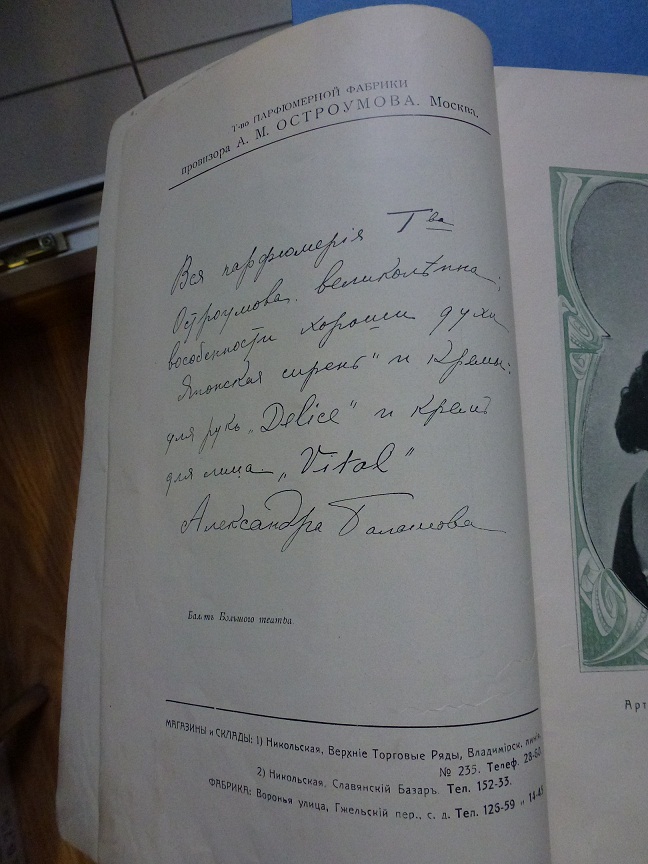 Т-во ПАРФЮМЕРНОЙ ФАБРИКИ
провизора А. М. ОСТРОУМОВА. Москва.
Вся парфюмерія Т-ва
Остроумова великолѣпна;
вособенности хороши духи
"Японская сирень" и Кремы:
для рукъ "Delice" и кремъ
для лица "Vital"
Александра Балашова
Бал-тъ Большого театра.
МАГАЗИНЫ и СКЛАДЫ: 1) Никольская, Верхніе Торговые Ряды, Владимірск. линія,
№ 235. Телеф. 28-60.
2) Никольская, Славянскій Базаръ. Тел. 152-33.
ФАБРИКА: Воронья улица, Гжельскій пер., с. д. Тел. 126-59 и
Арт